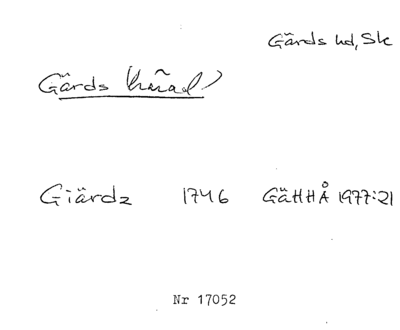 Gärds hd, Sk
Gärds härad
Giärdz 1746 GäHHÅ 1977:21
Nr 17052